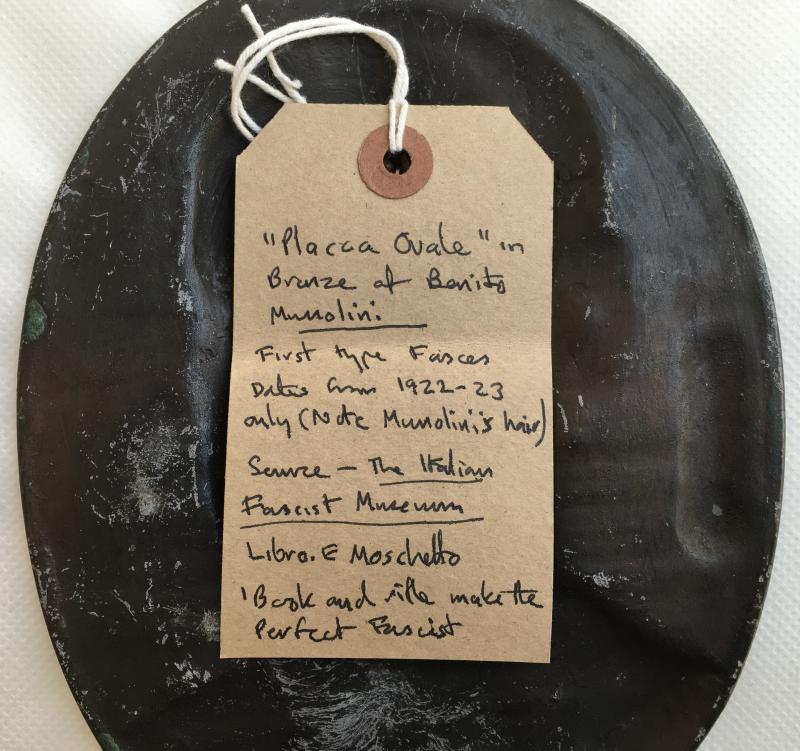 "Placca Ovale" in
Bronze of Benito
Mussolini
First type Fasces
Dates from 1922-23
only (Note Mussolini's hair)
Source - The Italian
Fascist Museum
Libro. E Moschetto
'Book and rifle make the
Perfect Fascist